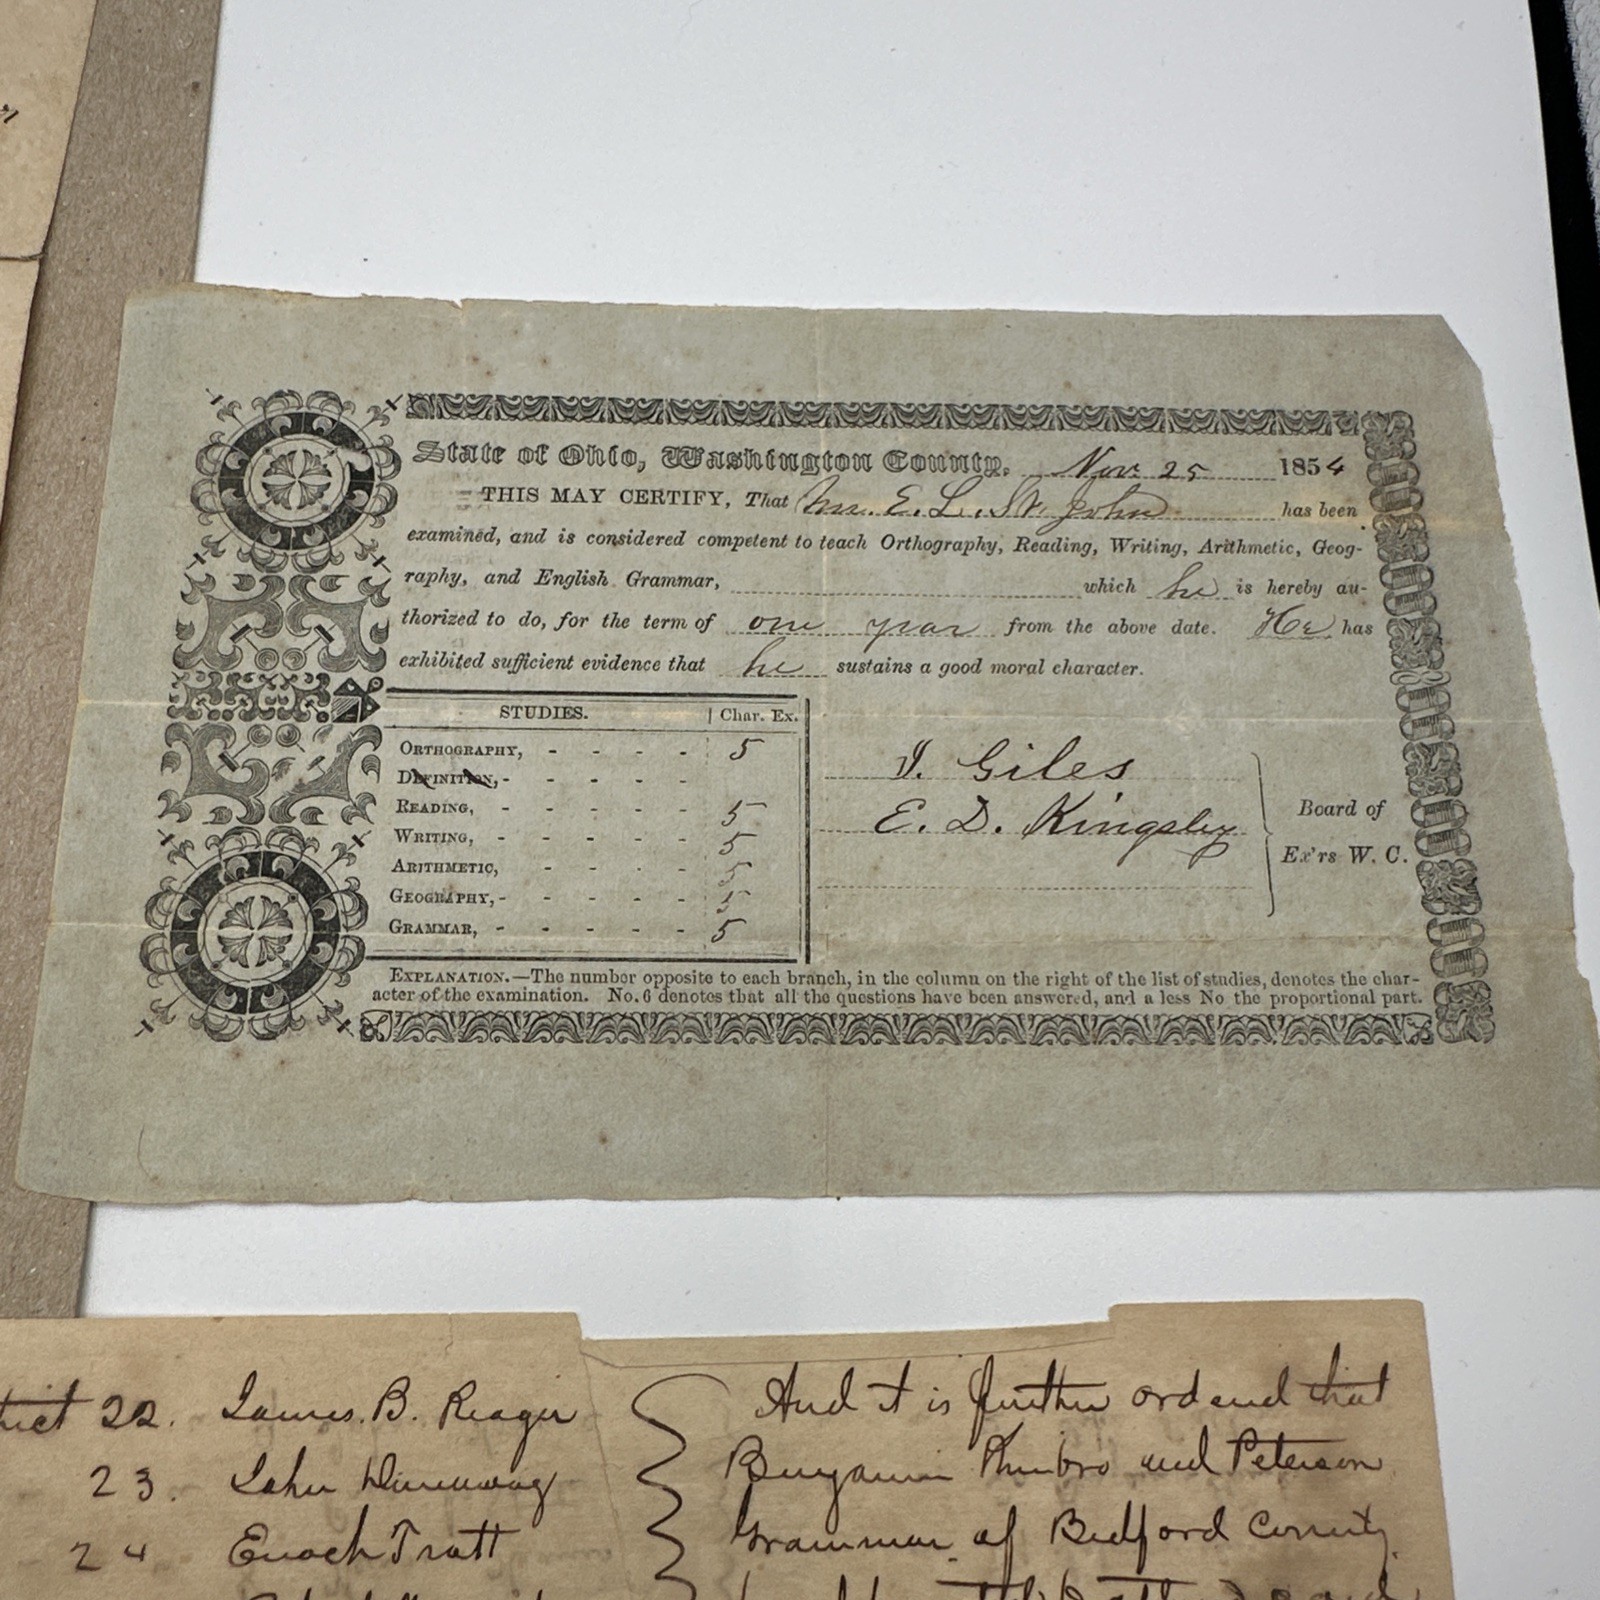 State of Ohio, Washington County, Nov. 25 1854
THIS MAY CERTIFY, That Mr. E. L. St. John has been
examined, and is considered competent to teach Orthography, Reading, Writing, Arithmetic, Geog-
raphy, and English Grammar, which he is hereby au-
thorized to do, for the term of one year from the above date. He has
exhibited sufficient evidence that he sustains a good moral character.
STUDIES. Char. Ex.
ORTHOGRAPHY, - - - - 5
DEFINITION, - - - - -
READING, - - - - - 5
WRITING, - - - - - 5
ARITHMETIC, - - - - 5
GEOGRAPHY, - - - - - 5
GRAMMAR, - - - - - 5
I. Giles
E. D. Kingsley
Board of
Ex'rs W. C.
EXPLANATION.—The number opposite to each branch, in the column on the right of the list of studies, denotes the char-
acter of the examination. No. 6 denotes that all the questions have been answered, and a less No the proportional part.
22. James. B. Reager
23. John
24 Enoch Trott
And it is further ordered that
Benjamin Kimbro and Peterson
Grammar of Bedford County